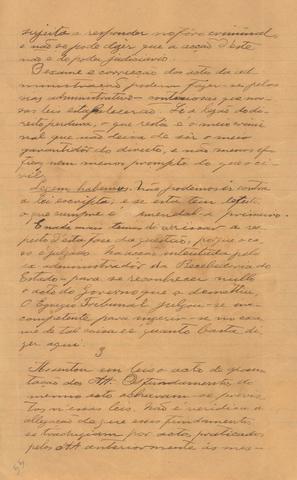 sujeita a responder no fôro criminal,
e não se pode dizer que a acção d'este
não é do poder judiciario.
O exame e correcção dos actos da ad-
ministração podem fazer-se pelos
nas administrativo-contenciosas que nos-
sas leis estabelecerão. Se a lezão do di-
reito perdura, o que resta é o meio crimi-
nal que não deixa de ser o meio
garantidor do direito, e não menos ef-
ficaz nem menos prompto do que o ci-
vil.
Legem habemus. Não podemos ir contra
a lei escripta, e se esta tem defeito,
o que cumpre é emendal-a primeiro.
E nada mais temos de arrasoar a res-
peito d'esta fase da questão, porque o ca-
so é julgado. Na acção intentada pelo
ex administrador da Recebedoria do
Estado para se reconhecer nullo
o acto do Governo que o demittiu
O Egregio Tribunal julgou-se in-
competente para ingerir-se no exa-
me de tal causa e é quanto basta di-
zer aqui.
3
Assentou em lei o acto de
dos AA. Os fundamentos do
mesmo acto achavam-se previs-
tos n'essas leis. Não é veridica a
allegação de que esses fundamentos
se traduzijam por actos praticados
pelos AA anteriormente ás mes-